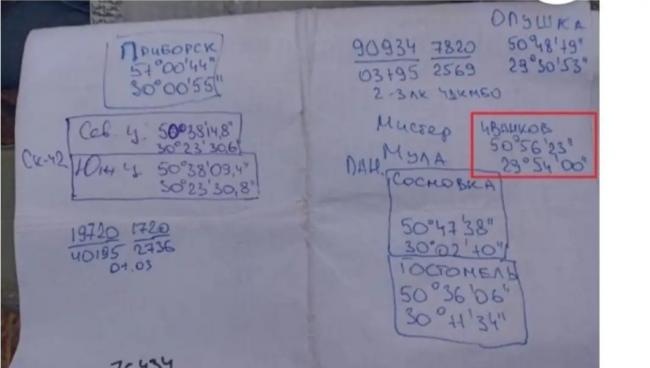 ПРИБОРСК
51°00'44"
30°00'55"
Сев. ц. 50°38'14,8"
30°23'30,6"
СК-42
Южн ц 50°38'09,4"
30°23'30,8"
19720 1720
40195 2736
01.03
ОПУШКА
50°48'19"
29°30'53"
90934 7820
03195 2569
Мистер
Мула
ИВАНКОВ
50°56'23"
29°54'00"
СОСНОВКА
50°47'38"
30°02'10"
ГОСТОМЕЛЬ
50°36'06"
30°11'34"